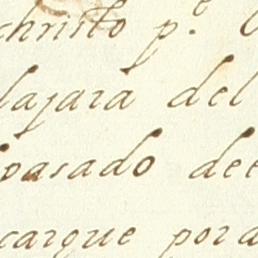 christo p.e
lajara del
pasado dee
cargue pora